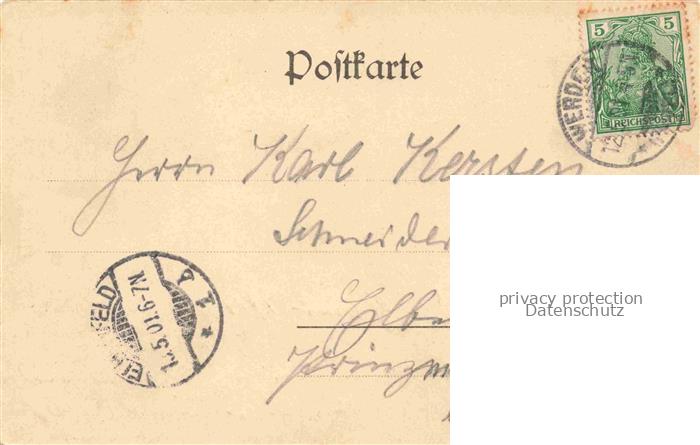 Postkarte
5 5
REICHSPOST
WERDEN
12
Herrn Karl Kersten
Schneider
Elbe
Prinzm
ELBERFELD
1..5.01.6-7N.
* 1 d
privacy protection
Datenschutz